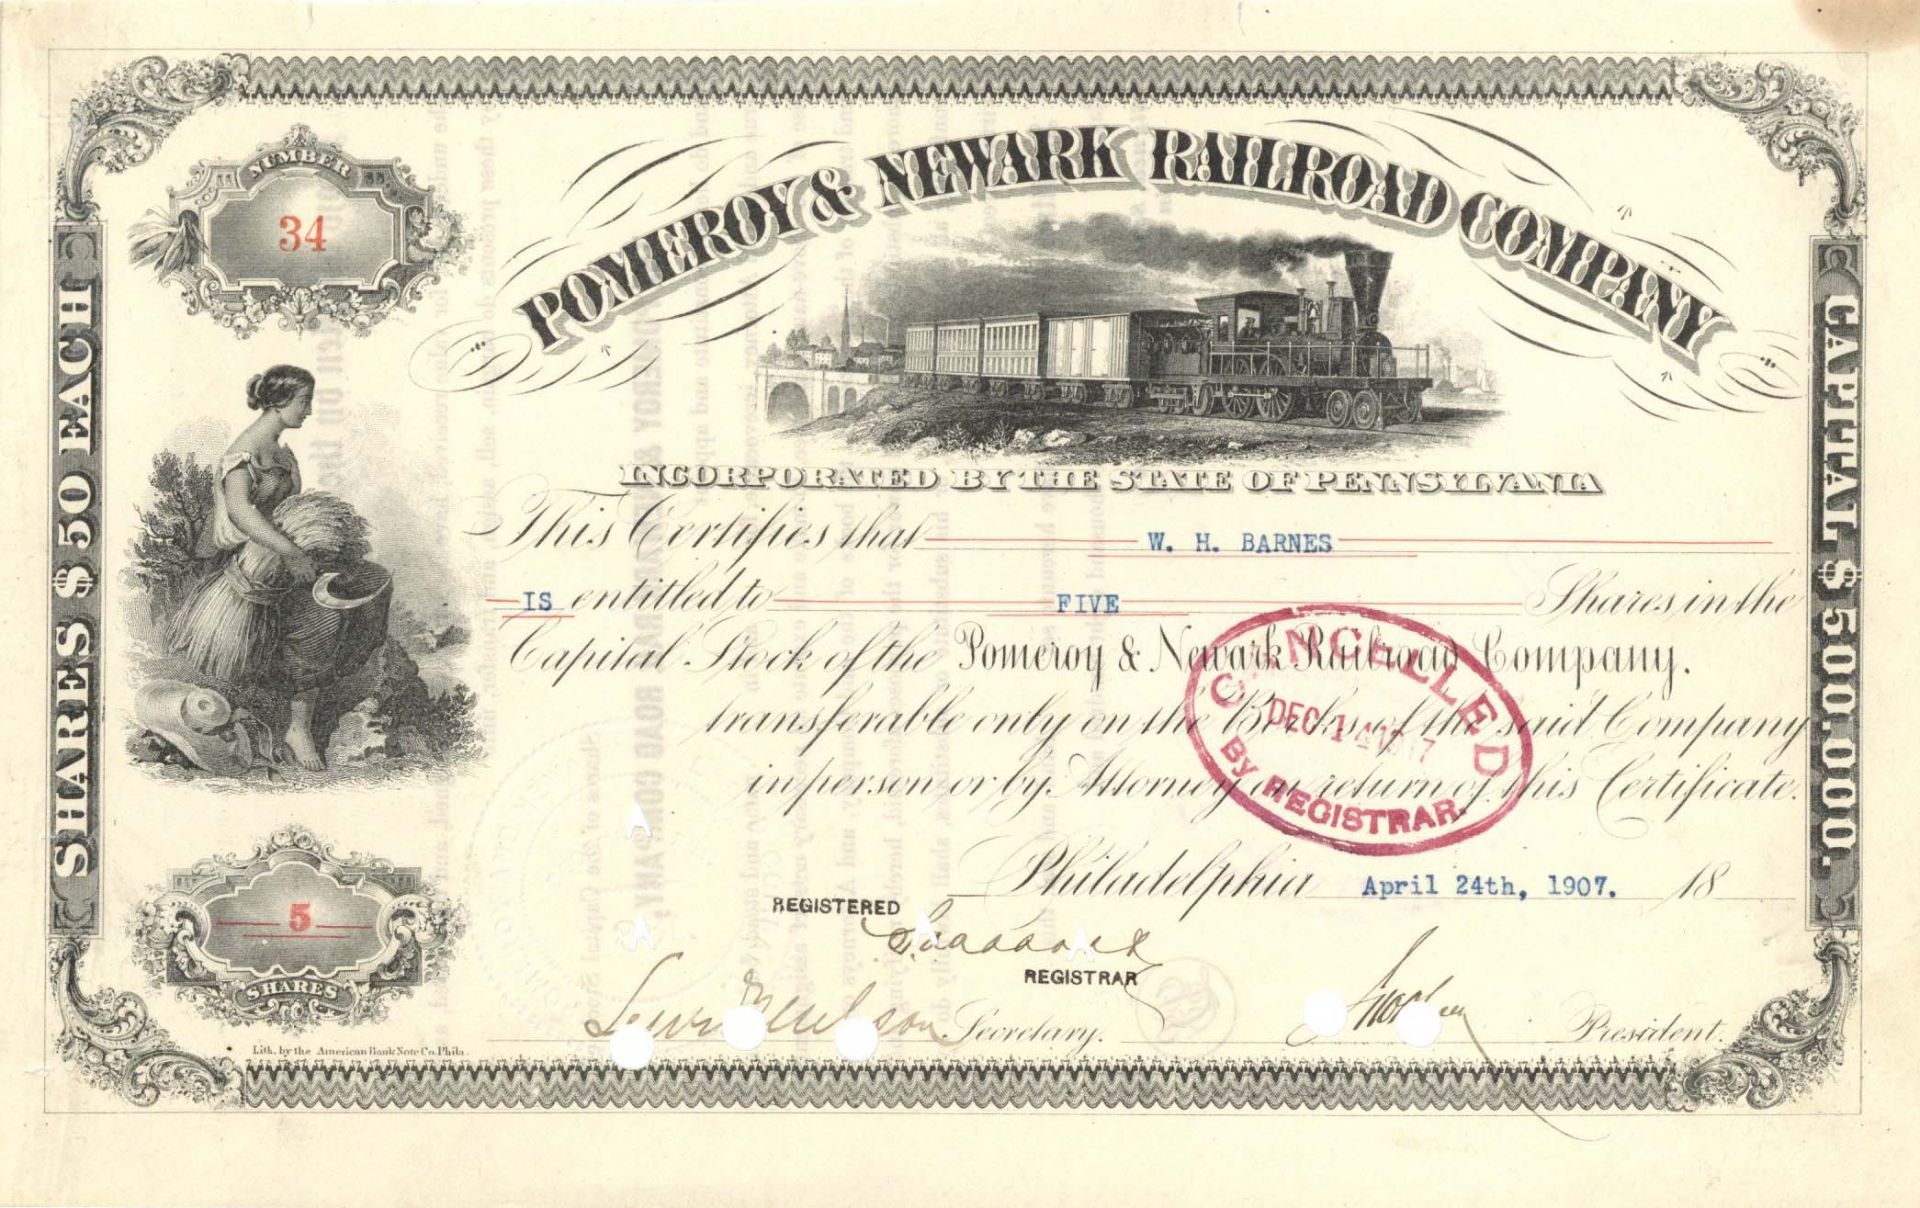 POMEROY & NEWARK RAILROAD COMPANY
NUMBER
34
SHARES $50 EACH
CAPITAL $500,000.
INCORPORATED BY THE STATE OF PENNSYLVANIA
This Certifies that W. H. BARNES
IS entitled to FIVE Shares in the
Capital Stock of the Pomeroy & Newark Railroad Company.
transferable only on the Books of the said Company
in person or by Attorney on return of this Certificate.
CANCELLED
DEC 14 1917
By REGISTRAR.
Philadelphia April 24th, 1907. 18
REGISTERED
REGISTRAR
5
SHARES
Lewis Neilson Secretary.
President.
Lith. by the American Bank Note Co. Phila.